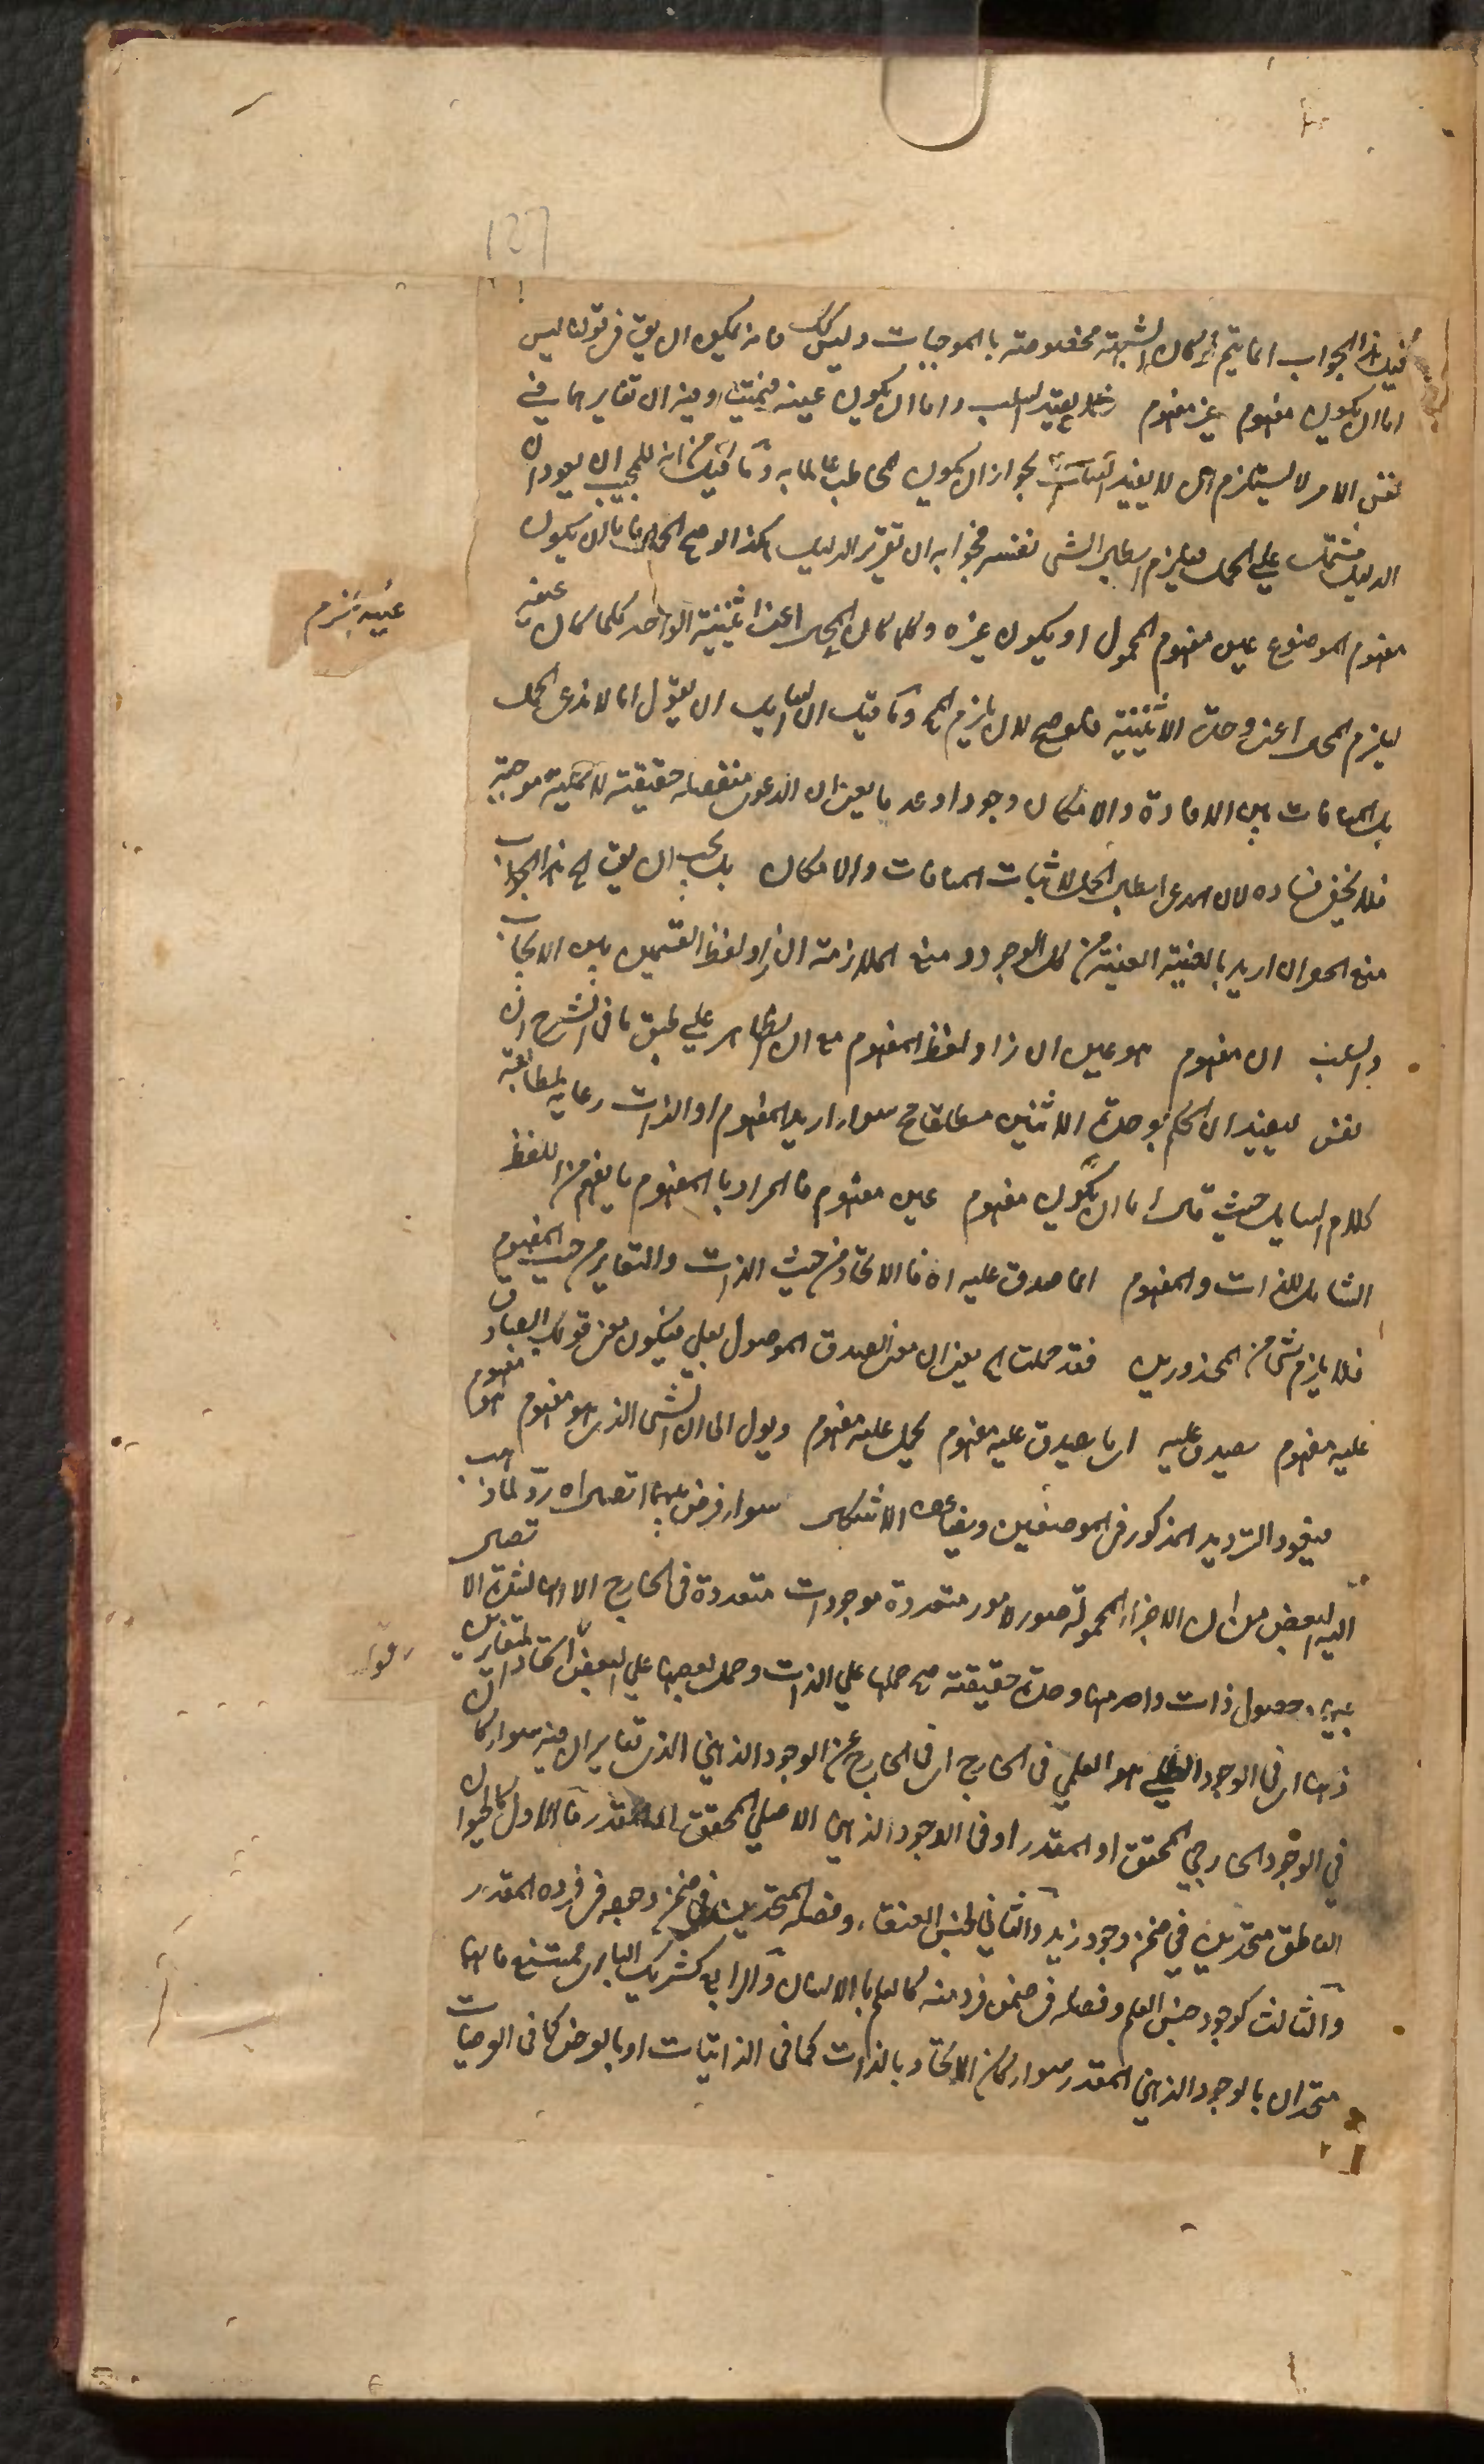 127
قيل هذا الجواب انما يتم لو كان الشبهة مخصوصة بالموجبات وليس كك فانه يمكن ان يق في قولنا ليس
اما ان يكون مفهوم غير مفهوم فلا يفيد السلب واما ان يكون عينه فيمتنع وفيه ان تغايرهما في
نفس الامر لا يستلزم ان لا يفيد لجواز ان يكون المخاطب عالما به وما قيل من انه للمجيب ان يعود ان
الدليل مشتمل على الحمل فيلزم ابطال الشئ نفسه فجوابه ان تقرير الدليل هكذا لو صح الحمل فاما ان يكون
مفهوم الموضوع عين مفهوم المحمول او يكون غيره وكلما كان المحال اعنى اثنينية الواحد كلما كان عينه
غيره يلزم
ليلزم المحال اعنى وحدة الاثنينية فلو صح لان يلزم المح وما قيل ان للسائل ان يقول انا لا ندعى الحمل
بل المنافات بين الافادة والامكان وجودا وعدما يعنى ان الدعوى منفصلة حقيقية لا حملية موجبة
فلا يخفى فساده لان المدعى ابطال الحمل لا اثبات المنافات والامكان بل يجب ان يق الخ هذا الجواب
منع الحمل ان اريد بالعينية العينية من كل الوجوه ومنع الملازمة ان زاد لفظ القسمين بين الايجاب
والسلب ان مفهوم هو عين ان زاد لفظ المفهوم مع ان الظاهر على طبق ما فى الشرح ان
نفس ليفيد ان الحكم بوحدة الاثنين مطلقا مح سواء اريد المفهوم او الذات رعاية لمطابقة
كلام السايل حيث قال اما ان يكون مفهوم عين مفهوم فالمراد بالمفهوم ما يفهم من اللفظ
الشامل للذات والمفهوم اما صدق عليه اه فالاتحاد من حيث الذات والتغاير من حيث المفهوم
فلا يلزم شئ من المحذورين فقد حملت الخ يعنى ان معنى الصدق الموصول بعلى فيكون معنى قولك الصادق
عليه مفهوم يصدق عليه اى ما يصدق عليه مفهوم يحمل عليه مفهوم ويؤل الى ان الشئ الذى هو مفهوم هو مفهوم
فيعود الترديد المذكور فى الموضعين ويضاعف الاشكال سواء فرض بينهما اتصال اه رد لما ذهب
اليه البعض من ان الاجزاء المحمولة صور لامور متعددة موجودات متعددة فى الخارج الا انها لشدة الاتصال
بينها حصول ذات واحدة منها وحدة حقيقية صح حملها على الذات وحمل بعضها على البعض اتحاد المتغايرين
ذهنا اى فى الوجود الظلى هو العلمى فى الخارج اى فى الخارج عن الوجود الذهنى الذى تغايران فيه سواء كان
في الوجود الخارجي المحقق او المقدر او فى الوجود الذهني الاصلي المحقق او المقدر فالاول كالحيوان
الناطق متحدين في ضمن وجود زيد والثاني كجنس العنقاء وفصله المتحدين فى ضمن وجوده فى فرده المقدر
والثالث كوجود جنس العلم وفصله فى ضمن فرد منه كالعلم بالانسان والرابع كشريك البارى ممتنع فانهما
متحدان بالوجود الذهني المقدر سواء كان الاتحاد بالذات كما فى الذاتيات او بالعرض كما فى العرضيات